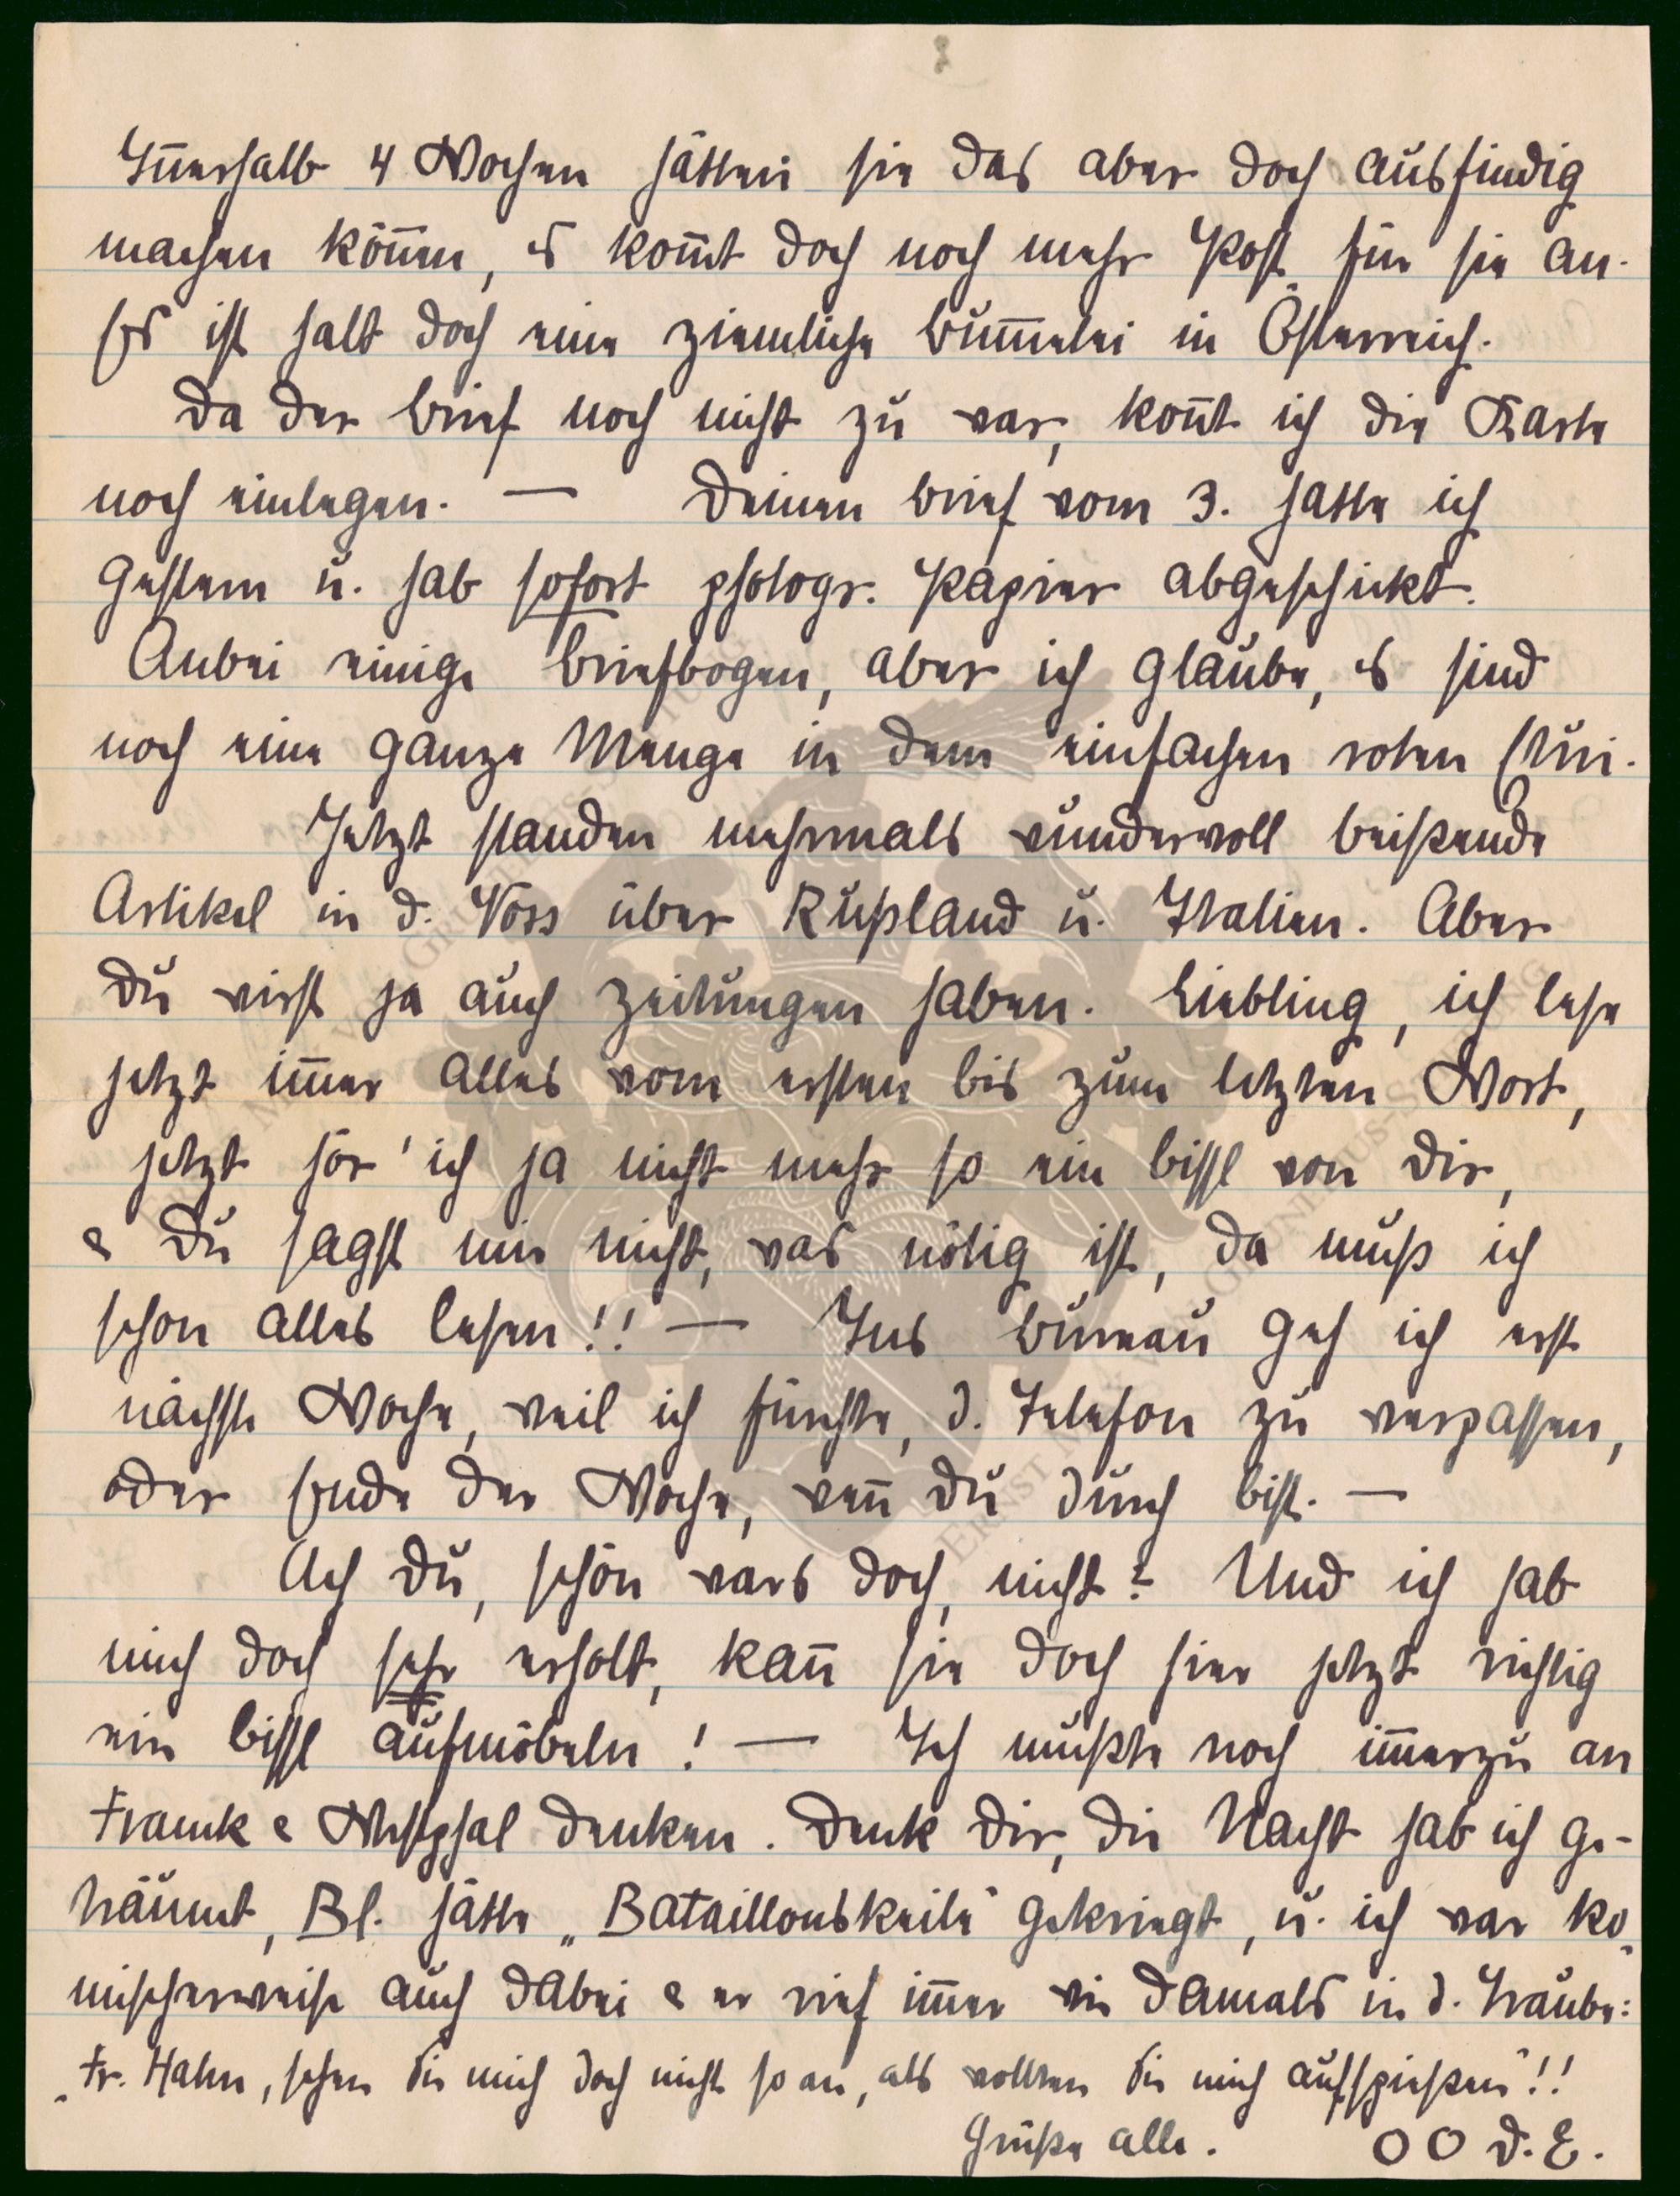 Innerhalb 4 Wochen hätten sie das aber doch ausfindig
machen können, es kom̅t doch noch mehr Post für sie an.
Es ist halt doch eine ziemliche Bum̅elei in Österreich.
Da der Brief noch nicht zu war, kon̅t ich die Karte
noch einlegen. — Deinen Brief vom 3. hatte ich
gestern u. hab sofort photogr. Papier abgeschickt.
Anbei einige Briefbogen, aber ich glaube, es sind
noch eine ganze Menge in dem einfachen roten Etui.
Jetzt standen mehrmals wundervoll beißende
Artikel in d. Voss über Rußland u. Italien. Aber
Du wirst ja auch Zeitungen haben. Liebling, ich lese
jetzt im̅er alles vom ersten bis zum letzten Wort,
jetzt hör' ich ja nicht mehr so ein bissl von Dir,
& Du sagst mir nicht, was nötig ist, da muß ich
schon alles lesen!! — Ins Bureau geh ich erst
nächste Woche, weil ich fürchte, d. Telefon zu verpassen,
oder Ende der Woche, wen̅ Du durch bist. —
Ach Du, schön wars doch, nicht? Und ich hab
mich doch sehr erholt, kan̅ sie doch hier jetzt richtig
ein bissl aufmöbeln! — Ich mußte noch im̅erzu an
Franck & Westphal denken. Denk Dir, die Nacht hab ich ge-
träumt, Bl. hätte „Bataillonskeile" gekriegt, u. ich war ko-
mischerweise auch dabei & er rief im̅er wie damals in d. Traube:
„Fr. Hahn, sehen Sie mich doch nicht so an, als wollten Sie mich aufspießen"!!
Grüße alle. O O D. E.